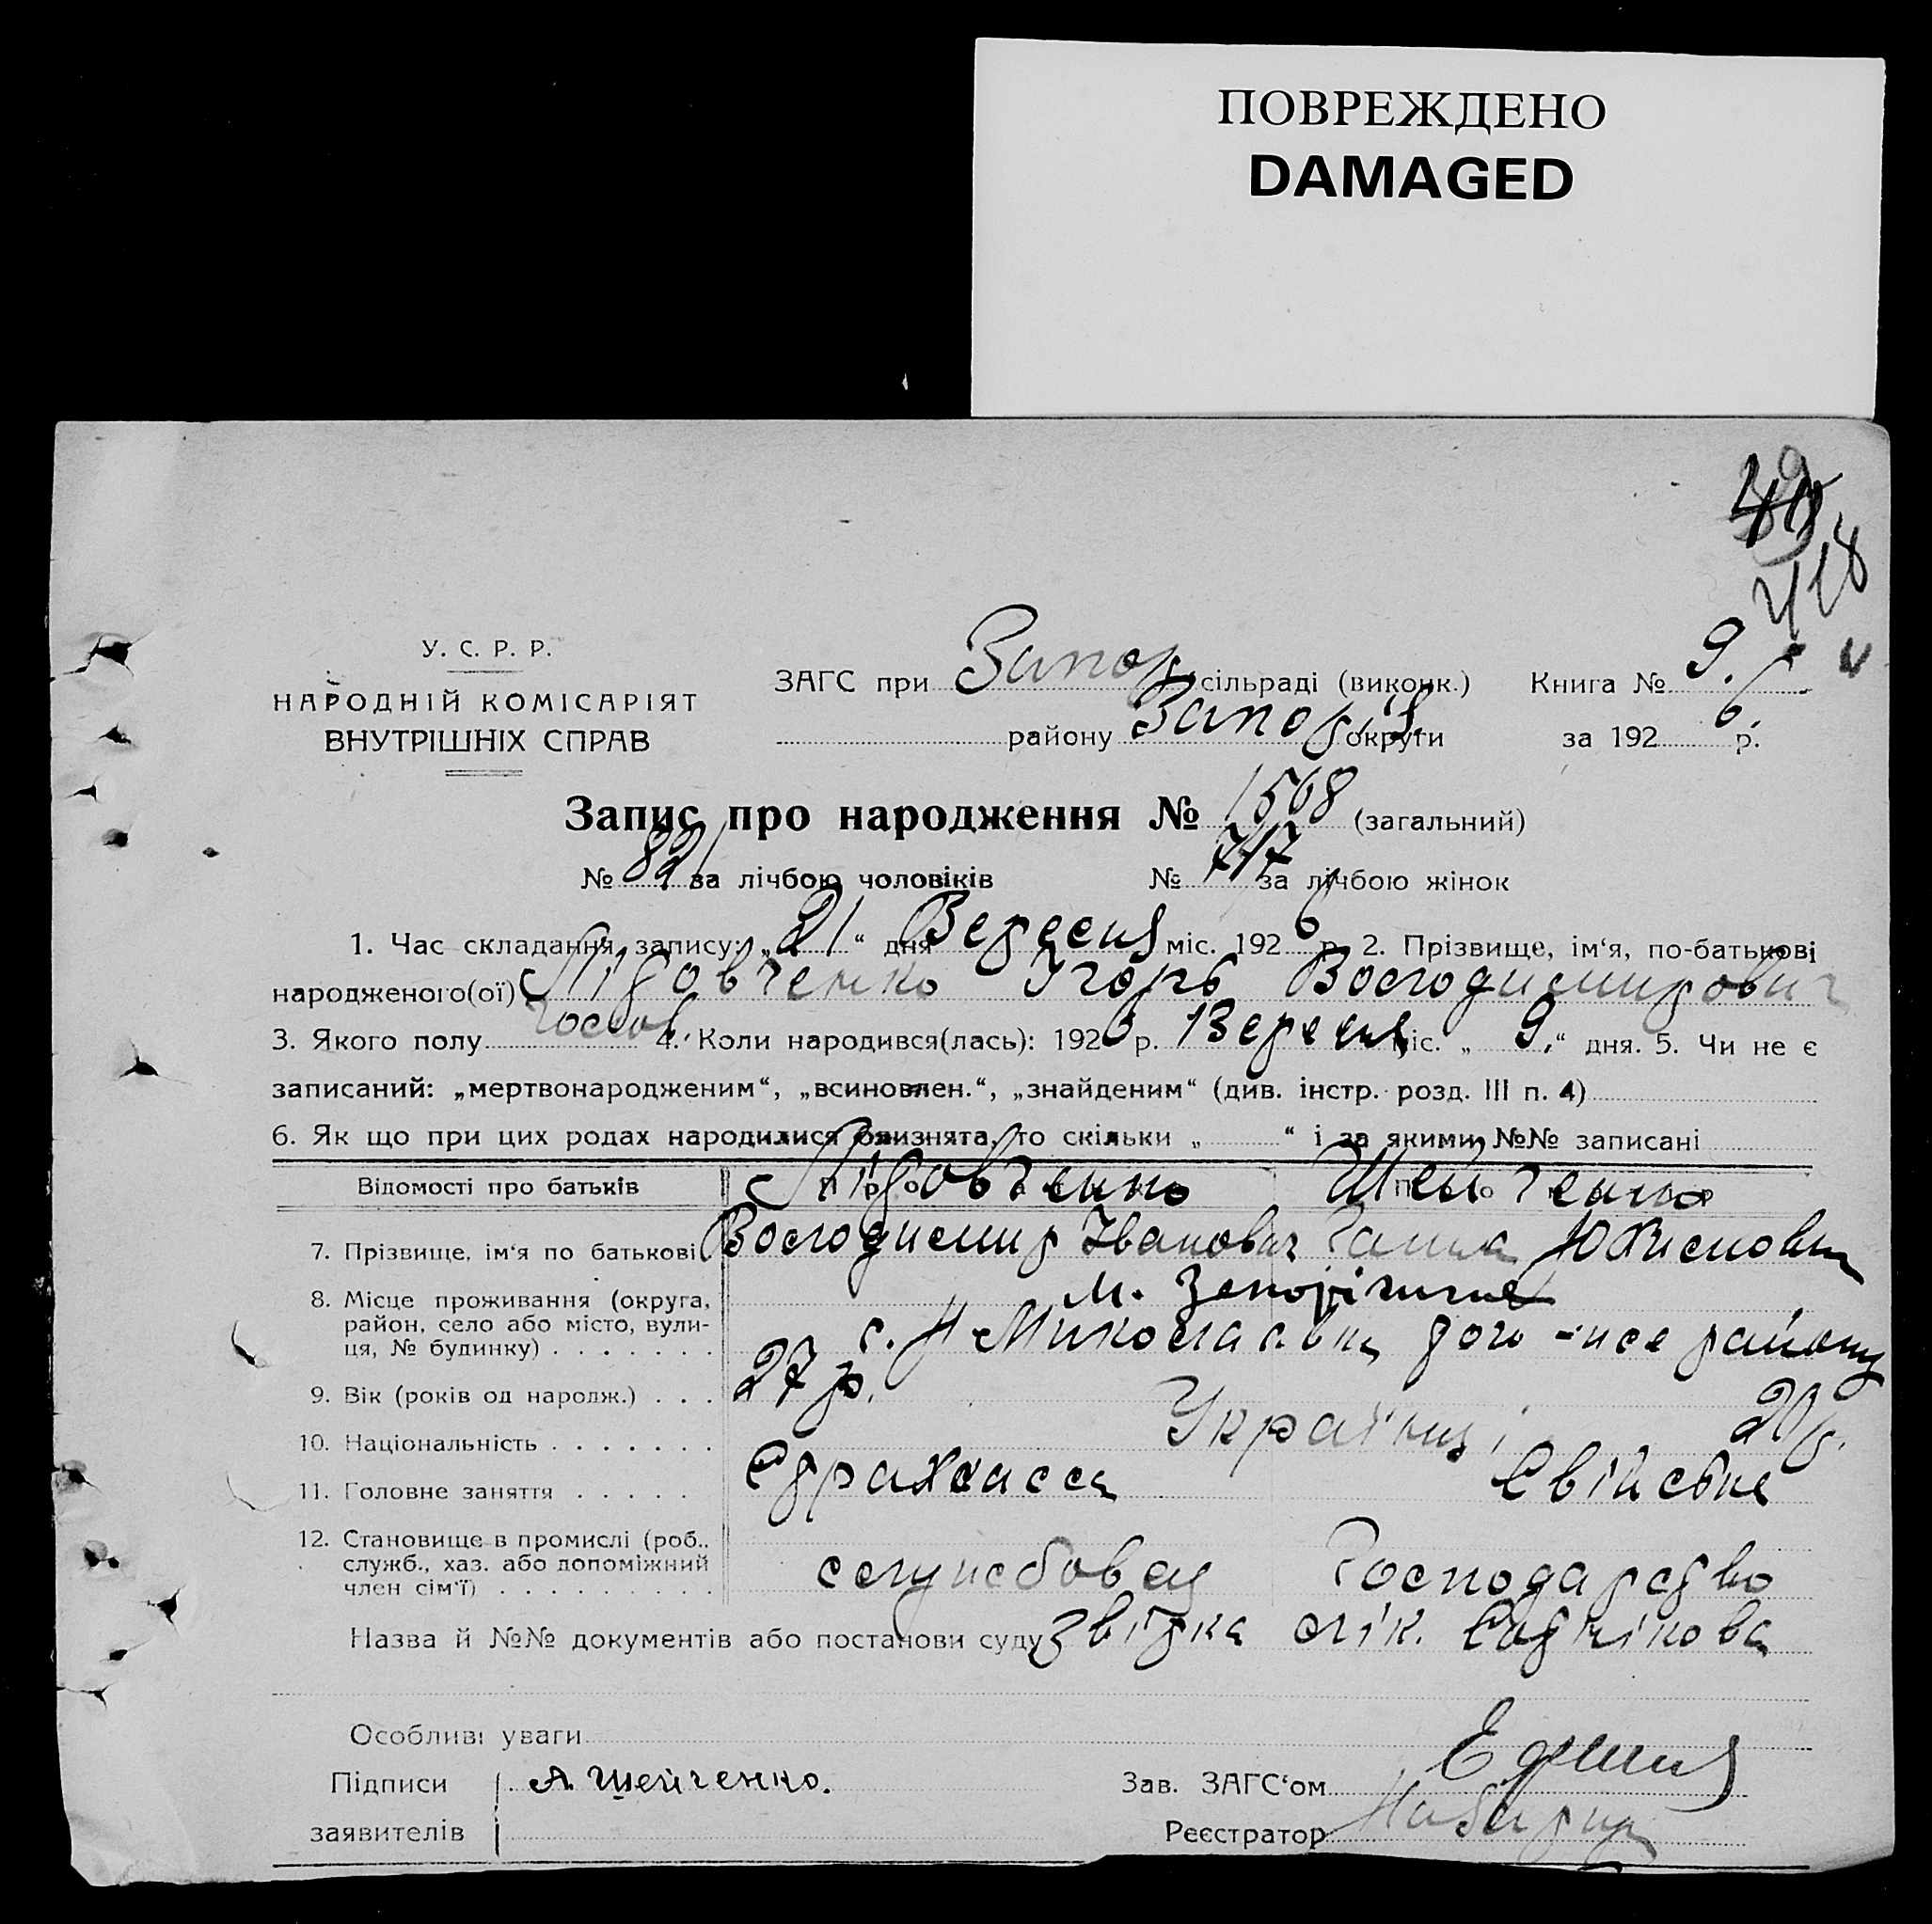 ПОВРЕЖДЕНО
DAMAGED
418
У. С. Р. Р.
НАРОДНІЙ КОМІСАРІЯТ
ВНУТРІШНІХ СПРАВ
ЗАГС при Запор. сільраді (виконк.) Книга № 9.
району Запоріз. округи за 192 6. р.
Запис про народження № 1568 (загальний)
№ 821 за лічбою чоловіків № 747 за лічбою жінок
1. Час складання запису: „ 21 “ дня Вересня міс. 192 6 р. 2. Прізвище, ім‘я, по-батькові
народженого(ої) Игорь Володимирович
3. Якого полу чолов. 4. Коли народився(лась): 192 6 р. Вересня міс. „ 9. “ дня. 5. Чи не є
записаний: „мертвонародженим“, „всиновлен.“, „знайденим“ (див. інстр. розд. III п. 4)
6. Як що при цих родах народилися близнята, то скільки „ “ і за якими №№ записані
Відомості про батьків Шейченко
7. Прізвище, ім‘я по батькові Володимир Іванович Ганна
м. Запоріжжя
8. Місце проживання (округа, район, село або місто, вулиця, № будинку)
с. Миколаївка того-же району
9. Вік (років од народж.) 27 р. 20 р.
10. Національність Українці
11. Головне заняття Страхкасса Свійське
12. Становище в промислі (роб., служб., хаз. або допоміжний член сім‘ї) службовець Господарство
Назва й №№ документів або постанови суду Звідка лік.
Особливі уваги
Підписи А Шейченко. Зав. ЗАГС‘ом
заявителів Реєстратор